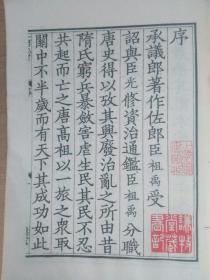 序
承議郎著作佐郎臣祖禹受
詔與臣光修資治通鑑臣祖禹分職
唐史得以攷其興廢治亂之所由昔
隋氏窮兵暴斂害虐生民其民不忍
共起而亡之唐高祖以一旅之眾取
關中不半歲而有天下其成功如此